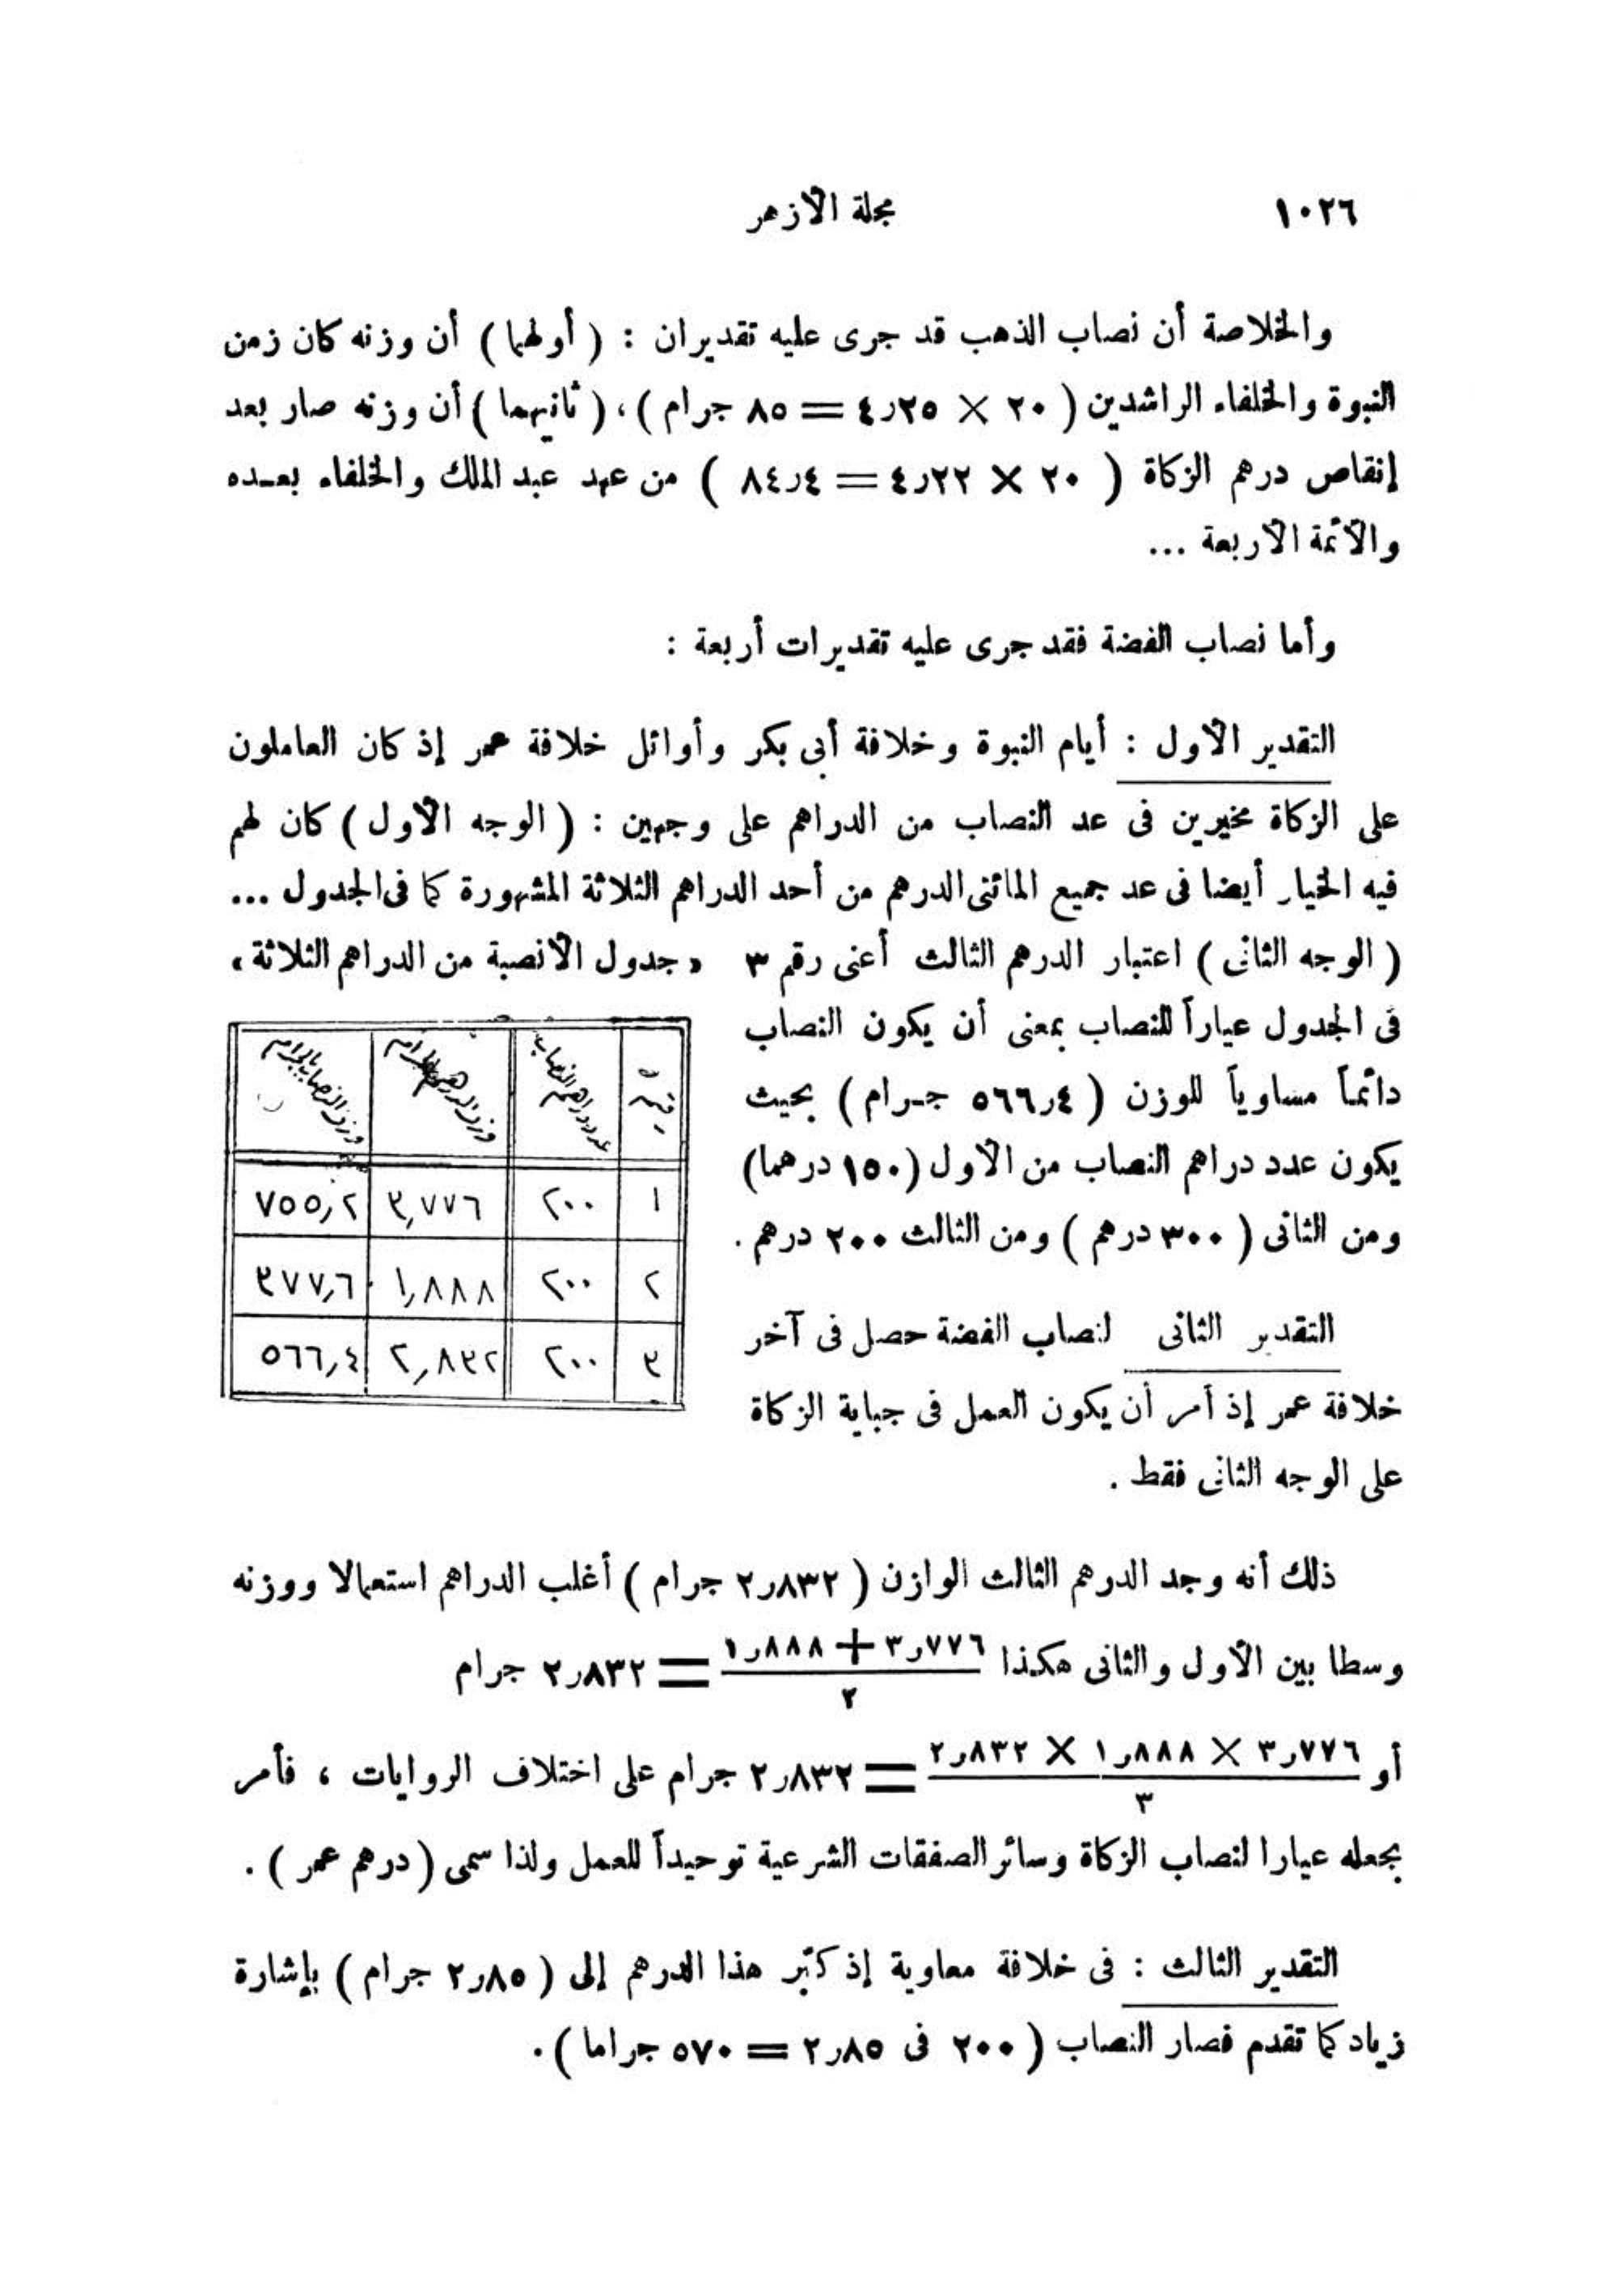 ١٠٢٦
مجلة الأزهر
والخلاصة أن نصاب الذهب قد جرى عليه تقديران : ( أولهما ) أن وزنه كان زمن
النبوة والخلفاء الراشدين ( ٢٠ × ٤٫٢٥ = ٨٥ جرام ) ، ( ثانيهما ) أن وزنه صار بعد
إنقاص درهم الزكاة ( ٢٠ × ٤٫٢٢ = ٨٤٫٤ ) من عهد عبد الملك والخلفاء بعده
والأئمة الأربعة ...
وأما نصاب الفضة فقد جرى عليه تقديرات أربعة :
التقدير الأول : أيام النبوة وخلافة أبى بكر وأوائل خلافة عمر إذ كان العاملون
على الزكاة مخيرين فى عد النصاب من الدراهم على وجهين : ( الوجه الأول ) كان لهم
فيه الخيار أيضا فى عد جميع المائتى الدرهم من أحد الدراهم الثلاثة المشهورة كما فى الجدول ...
( الوجه الثانى ) اعتبار الدرهم الثالث أعنى رقم ٣
فى الجدول عياراً للنصاب بمعنى أن يكون النصاب
دائماً مساوياً للوزن ( ٥٦٦٫٤ جرام ) بحيث
يكون عدد دراهم النصاب من الأول (١٥٠ درهما)
ومن الثانى ( ٣٠٠ درهم ) ومن الثالث ٢٠٠ درهم .
« جدول الأنصبة من الدراهم الثلاثة »
رقم | عدد دراهم النصاب | وزن الدرهم بالجرام | وزن النصاب بالجرام
١ | ٢٠٠ | ٣٫٧٧٦ | ٧٥٥٫٢
٢ | ٢٠٠ | ١٫٨٨٨ | ٣٧٧٫٦
٣ | ٢٠٠ | ٢٫٨٣٢ | ٥٦٦٫٤
التقدير الثانى لنصاب الفضة حصل فى آخر
خلافة عمر إذ أمر أن يكون العمل فى جباية الزكاة
على الوجه الثانى فقط .
ذلك أنه وجد الدرهم الثالث الوازن ( ٢٫٨٣٢ جرام ) أغلب الدراهم استعمالا ووزنه
وسطا بين الأول والثانى هكذا ٣٫٧٧٦ + ١٫٨٨٨ / ٢ = ٢٫٨٣٢ جرام
أو ٣٫٧٧٦ × ١٫٨٨٨ × ٢٫٨٣٢ / ٣ = ٢٫٨٣٢ جرام على اختلاف الروايات ، فأمر
بجعله عيارا لنصاب الزكاة وسائر الصفقات الشرعية توحيداً للعمل ولذا سمى ( درهم عمر ) .
التقدير الثالث : فى خلافة معاوية إذ كبّر هذا الدرهم إلى ( ٢٫٨٥ جرام ) بإشارة
زياد كما تقدم فصار النصاب ( ٢٠٠ فى ٢٫٨٥ = ٥٧٠ جراما ) .